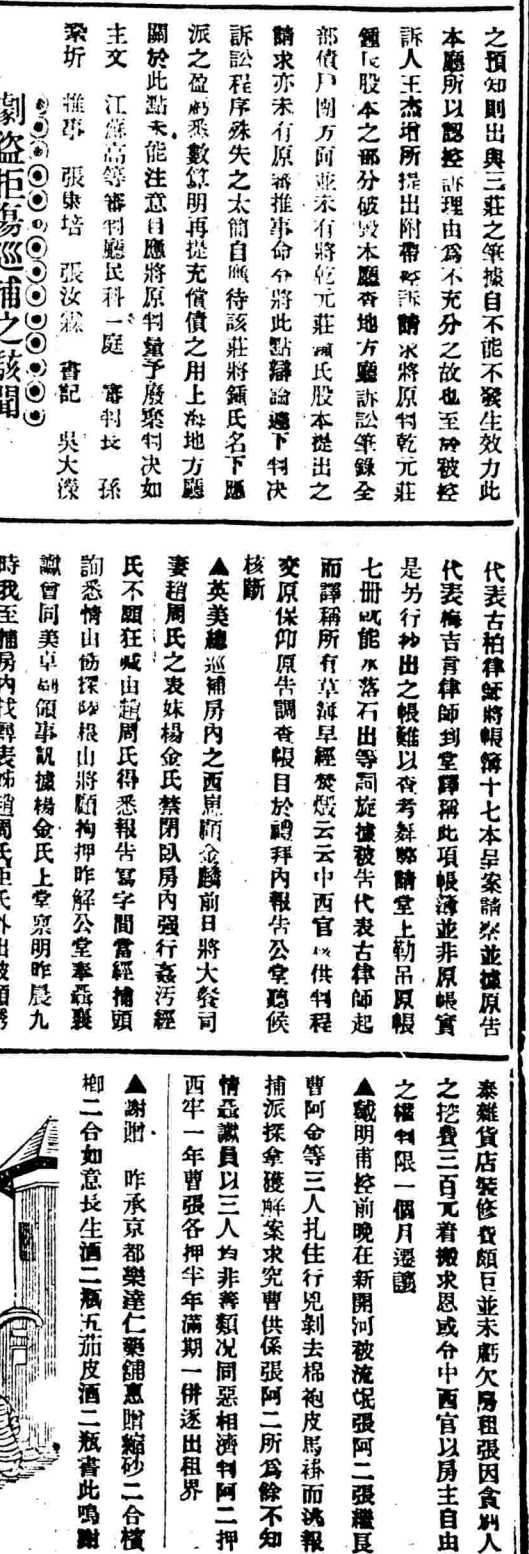 之預知則出與三莊之筆據自不能不發生效力此
本廳所以認控訴理由爲不充分之故也至於被控
訴人王杰增所提出附帶控訴請求將原判乾元莊
鍾氏股本之部分破毀本廳查地方廳訴訟筆錄全
部債戶團方面並未有將乾元莊鍾氏股本提出之
請求亦未有原審推事命令將此點辯論遽下判決
訴訟程序殊失之太簡自應待該莊將鍾氏名下應
派之盈虧悉數算明再提充償債之用上海地方廳
關於此點未能注意自應將原判量予廢棄判决如
主文 江蘇高等審判廳民科一庭 審判長 孫
鞏圻 推事 張康培 張汝霖 書記 吳大澯
劇盜拒傷巡捕之駭聞
代表古柏律師將帳簿十七本呈案請察並據原告
代表梅吉言律師到堂譯稱此項帳簿並非原帳實
是另行抄出之帳難以查考舞弊請堂上勒吊原帳
七册既能水落石出等詞旋據被告代表古律師起
而譯稱所有草簿早經焚燬云云中西官以供判程
交原保仰原告調查帳目於禮拜內報告公堂聽候
核斷
▲英美總巡捕房內之西崽顧金麟前日將大餐司
妻趙周氏之表妹楊金氏禁閉臥房內强行姦汚經
氏不願狂喊由趙周氏得悉報告寫字間當經捕頭
詢悉情由飭探將根山將顧拘押昨解公堂奉聶襄
讞曾同美卓副領事訊據楊金氏上堂稟明昨晨九
時我至捕房內找尋表姊趙周氏主氏外出被顧誘
泰雜貨店裝修費頗巨並未虧欠房租張因貪別人
之挖費三百元着搬求恩或令中西官以房主自由
之權判限一個月遷讓
▲戴明甫控前晚在新開河被流氓張阿二張繼良
曹阿金等三人扎住行兇剝去棉袍皮馬褂而逃報
捕派探拿獲解案求究曹供係張阿二所爲餘不知
情聶讞員以三人均非善類况同惡相濟判阿二押
西牢一年曹張各押半年滿期一併逐出租界
▲謝贈 昨承京都樂達仁藥舖惠贈縮砂二合檳
榔二合如意長生酒二瓶五茄皮酒二瓶書此鳴謝